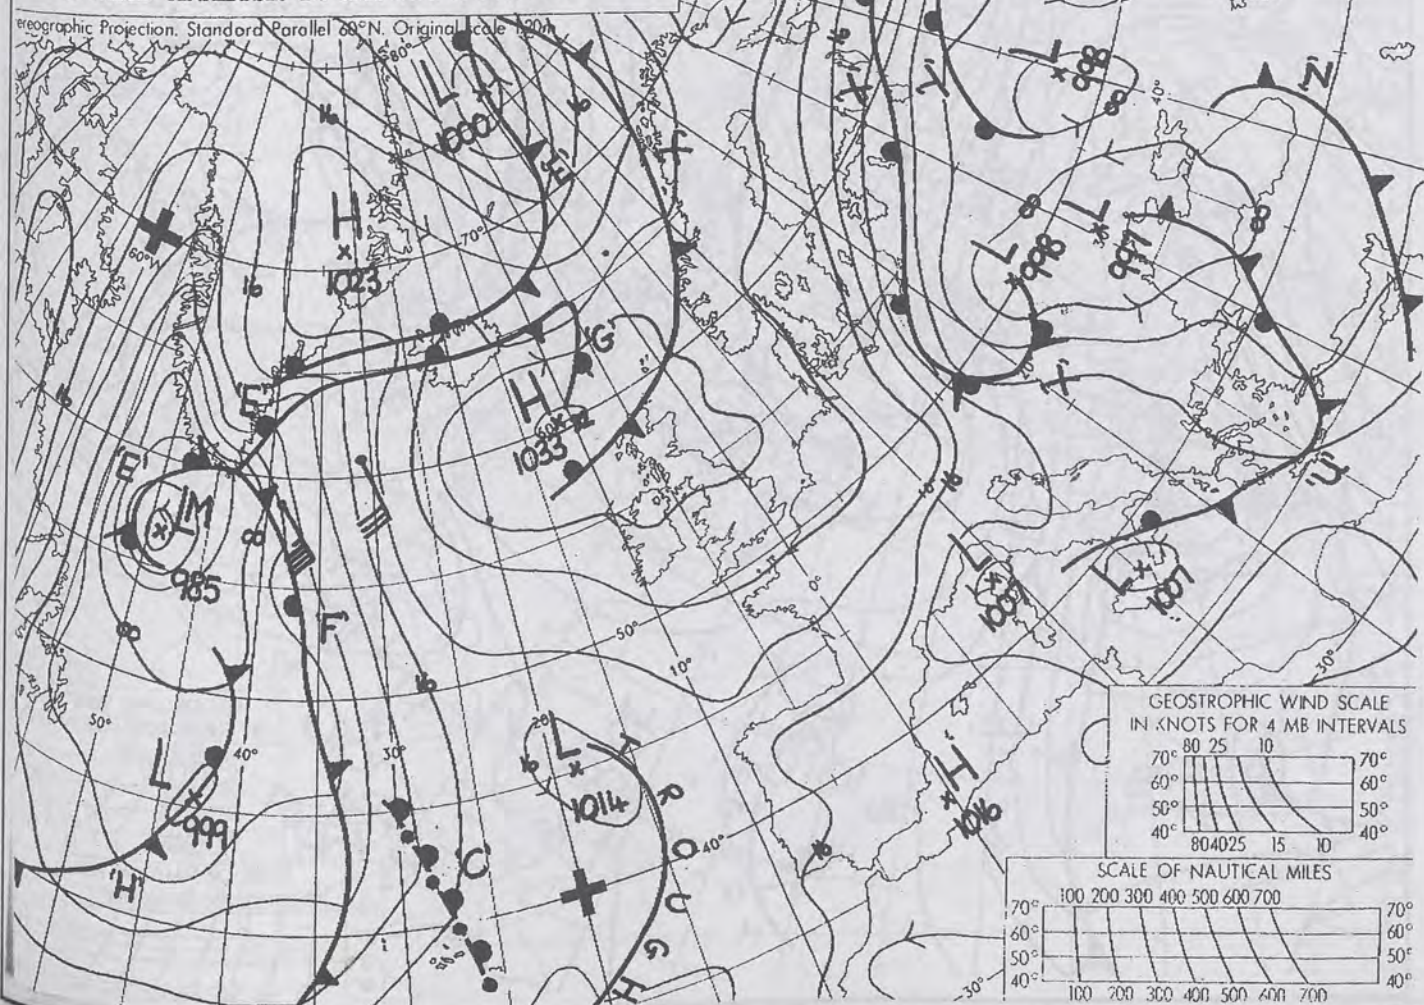 ereographic Projection. Standord Parallel 60°N. Original scale 1:20m
80°
L
1000
16
16
'E'
'F'
16
'X'
'Y'
L
998
00
40°
'Z'
H
1023
60°W
70°
16
16
'G'
H
1033
L
998
L
997
00
00
'X'
'E'
'E'
LM
985
00
00
'F'
16
16
'U'
L
1007
L
1007
0°
50°
10°
30°
50°
40°
30°
20°
L
999
'H'
L
1014
16
TROUGH
'C'
40°
H
1016
16
30°
GEOSTROPHIC WIND SCALE
IN KNOTS FOR 4 MB INTERVALS
80 25 10
70° 70°
60° 60°
50° 50°
40° 40°
80 40 25 15 10
SCALE OF NAUTICAL MILES
100 200 300 400 500 600 700
70° 70°
60° 60°
50° 50°
40° 40°
100 200 300 400 500 600 700